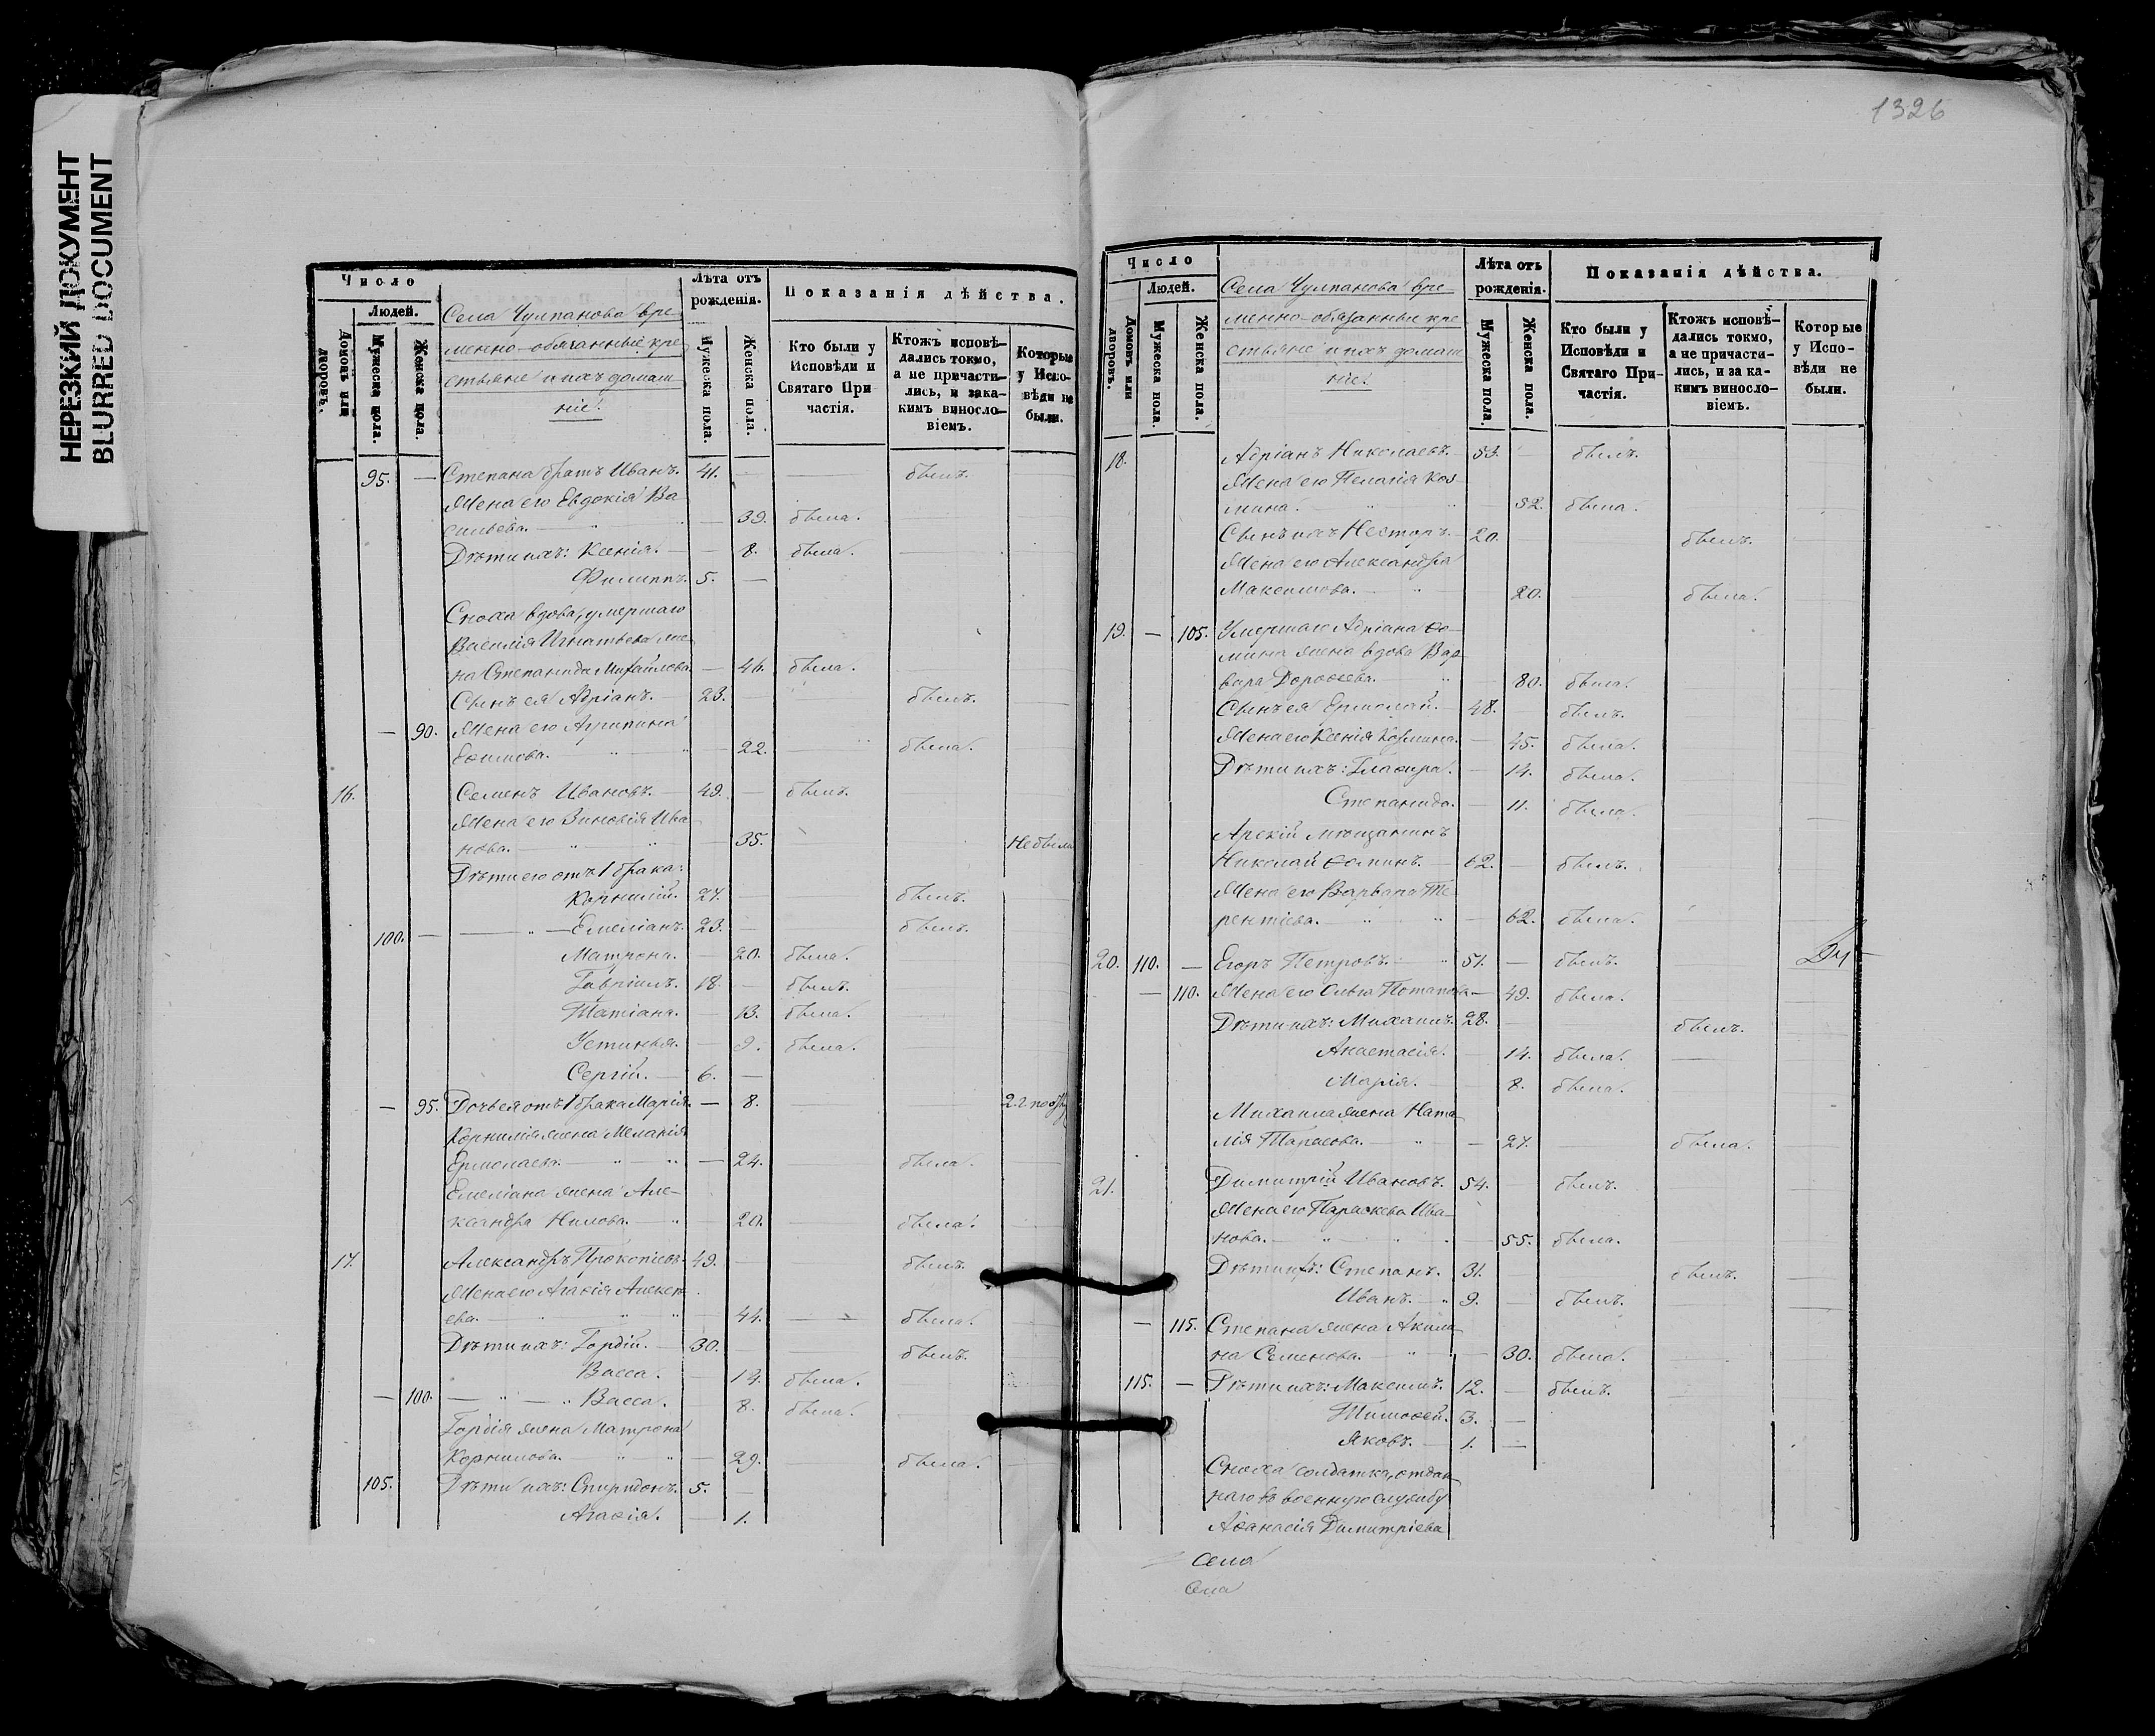 НЕРЕЗКИЙ ДОКУМЕНТ
BLURRED DOCUMENT
Число
Людей.
Домовъ или дворовъ.
Мужеска пола.
Женска пола.
Села Чулпанова вре
менно-обязанные кре
стьяне и ихъ домаш
ніе.
Лѣта отъ рожденія.
Мужеска пола.
Женска пола.
Показанія дѣйства.
Кто были у Исповѣди и Святаго Причастія.
Ктожъ исповѣ-дались токмо, а не причасти-лись, и зака-кимъ виносло-віемъ.
Которые у Испо-вѣди не были.
95. — Степана братъ Иванъ. 41. — былъ.
Жена его Евдокія Ва
сильева. — 39. была.
Дѣти ихъ: Ксенія. — 8. была.
Филиппъ. 5. —
Сноха вдова, умершаго
Василія Игнатьева же
на Степанида Михайлова. — 46. была.
Сынъ ея Адріанъ. 23. — былъ.
— 90. Жена его Агрипина
Ефимова. — 22. была.
16. Семенъ Ивановъ. 49. — былъ.
Жена его Зиновія Ива
нова. — 35. Не была
Дѣти его отъ 1 брака:
Корнилій. 27. — былъ.
100. — Емеліанъ. 23. — былъ.
Матрона. — 20. была.
Гавріилъ. 18. — былъ.
Татіана. — 13. была.
Устинья. — 9. была.
Сергій. 6. —
— 95. Дочь ея отъ 1 брака Марія. — 8.
Корнилія жена Меланія
Ермолаева. — 24. была.
Емеліана жена Але-
ксандра Нилова. — 20. была.
17. Александръ Прокопіевъ. 49. — былъ.
Жена его Агафія Алексѣ
ева. — 44. была.
Дѣти ихъ: Гордій. 30. — былъ.
Васса. — 14. была.
— 100. — Васса. 8. была.
Гордія жена Матрона
Корнилова. — 29. была.
105. Дѣти ихъ: Спиридонъ. 5. —
Агафія. — 1.
1326
Число
Людей.
Домовъ или дворовъ.
Мужеска пола.
Женска пола.
Села Чулпанова вре
менно-обязанные кре
стьяне и ихъ домаш
ніе.
Лѣта отъ рожденія.
Мужеска пола.
Женска пола.
Показанія дѣйства.
Кто были у Исповѣди и Святаго При-частія.
Ктожъ исповѣ-дались токмо, а не причасти-лись, и за ка-кимъ виносло-віемъ.
Которые у Испо-вѣди не были.
18. Адріанъ Николаевъ. 53. — былъ.
Жена его Пелагія Коз
мина. — 52. была.
Сынъ ихъ Несторъ. 20. былъ.
Жена его Александра
Максимова. 20. была.
19. — 105. Умершаго Адріана Ѳо-
мина жена вдова Вар-
вара Дороѳеева. — 80. была.
Сынъ ея Ермолай. 48. былъ.
Жена его Ксенія Козмина. — 45. была.
Дѣти ихъ: Глафира. — 14. была.
Степанида. — 11. была.
Арскій мѣщанинъ
Николай Ѳоминъ. 62. — былъ.
Жена его Варвара Те
рентіева. — 62. была.
20. 110. — Егоръ Петровъ. 51. — былъ.
— 110. Жена его Ольга Потапова — 49. была.
Дѣти ихъ: Михаилъ. 28. — былъ.
Анастасія. — 14. была. —
Марія. — 8. была.
Михаила жена Ната
лія Тарасова. — 27. была.
21. Димитрій Ивановъ. 54. — былъ.
Жена его Параскева Ива-
нова. — 55. была.
Дѣти ихъ: Степанъ. 31. былъ.
Иванъ. 9. — былъ.
— 115. Степана жена Акили
на Семенова. — 30. была.
115. — Дѣти ихъ: Максимъ. 12. — былъ.
Тимоѳей. 3. —
Яковъ. 1. —
Сноха солдатка, отдан
наго въ военную службу
Аѳанасія Димитріева
Села
Села